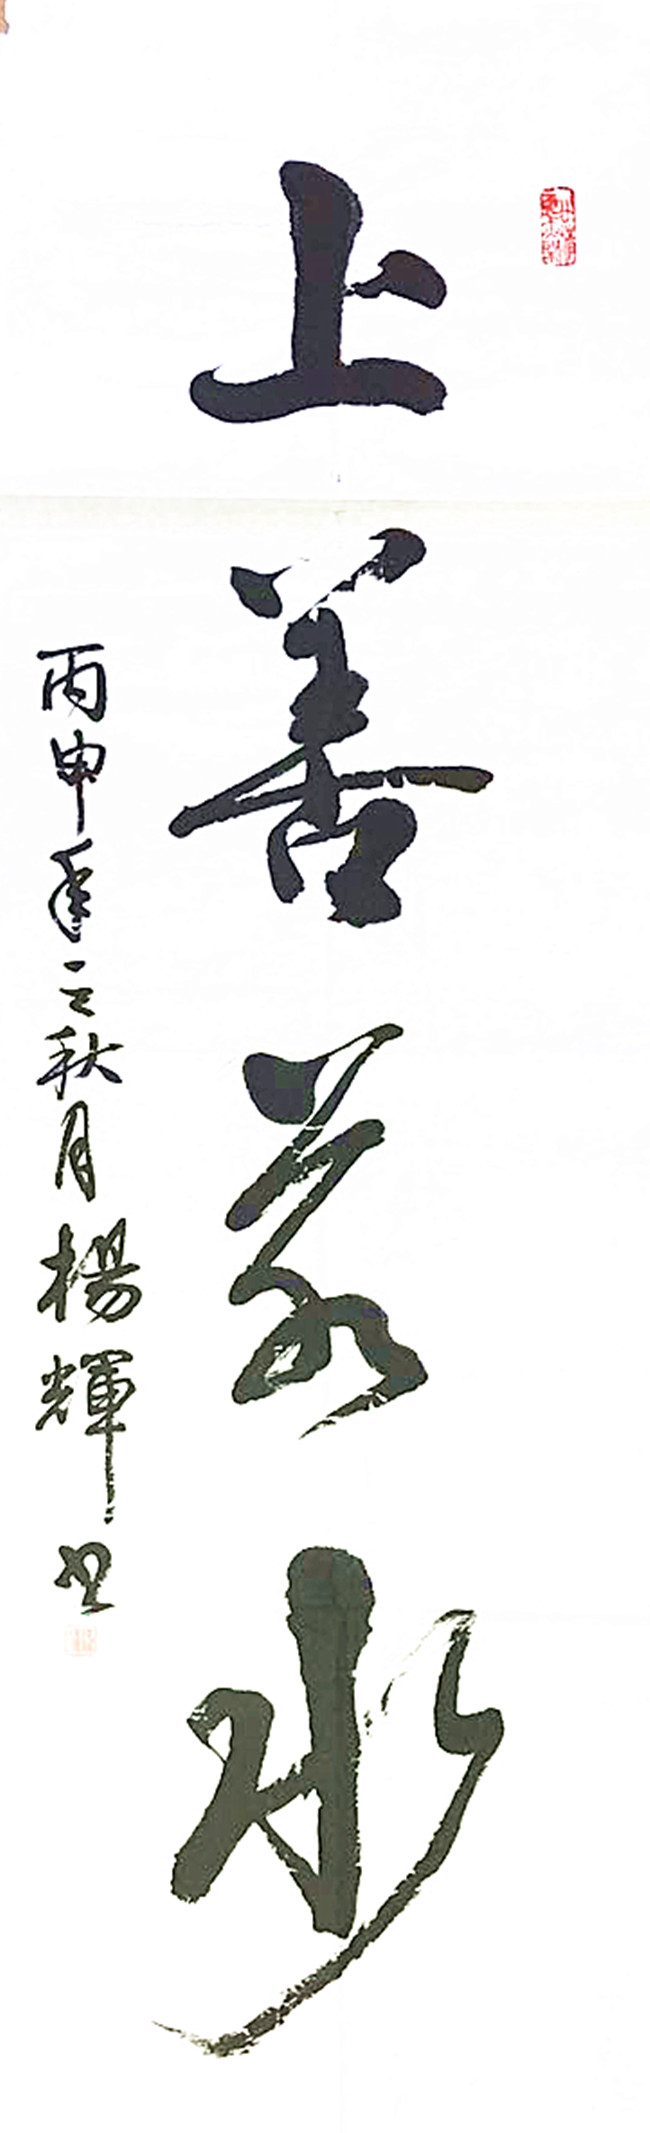 上善若水
丙申年之秋月楊輝書